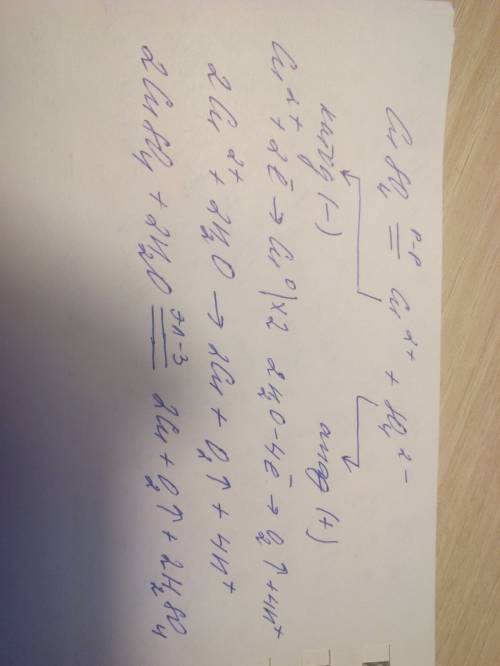 CuSO₄ р-р = Cu²⁺ + SO₄²⁻
катод (−) анод (+)
Cu²⁺ + 2ē → Cu⁰ | ×2 2H₂O − 4ē → O₂↑ + 4H⁺
2Cu²⁺ + 2H₂O → 2Cu + O₂↑ + 4H⁺
2CuSO₄ + 2H₂O эл-з = 2Cu + O₂↑ + 2H₂SO₄